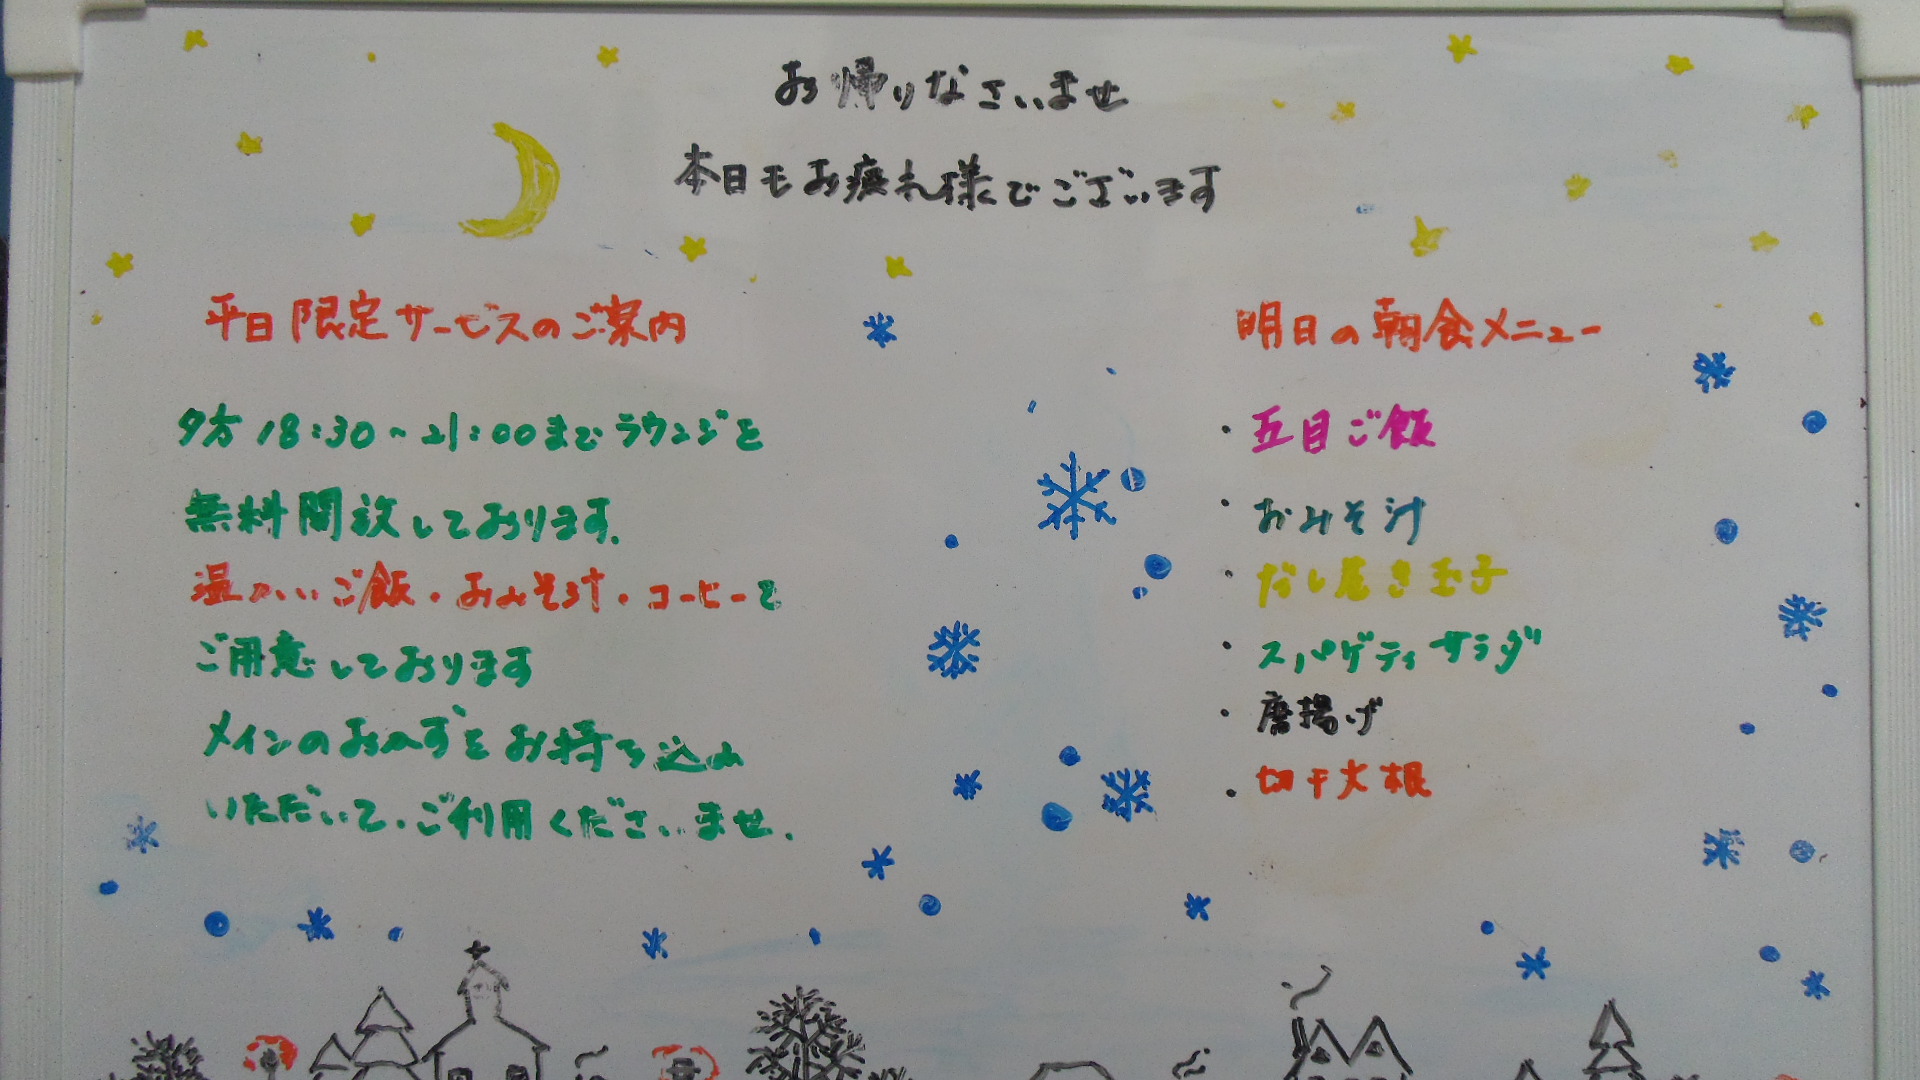 お帰りなさいませ
本日もお疲れ様でございます
平日限定サービスのご案内
夕方18:30~21:00までラウンジを
無料開放しております.
温かいご飯・おみそ汁・コーヒーを
ご用意しております
メインのおかずをお持ち込み
いただいて、ご利用くださいませ.
明日の朝食メニュー
・五目ご飯
・おみそ汁
・だし巻き玉子
・スパゲティサラダ
・唐揚げ
・切干大根